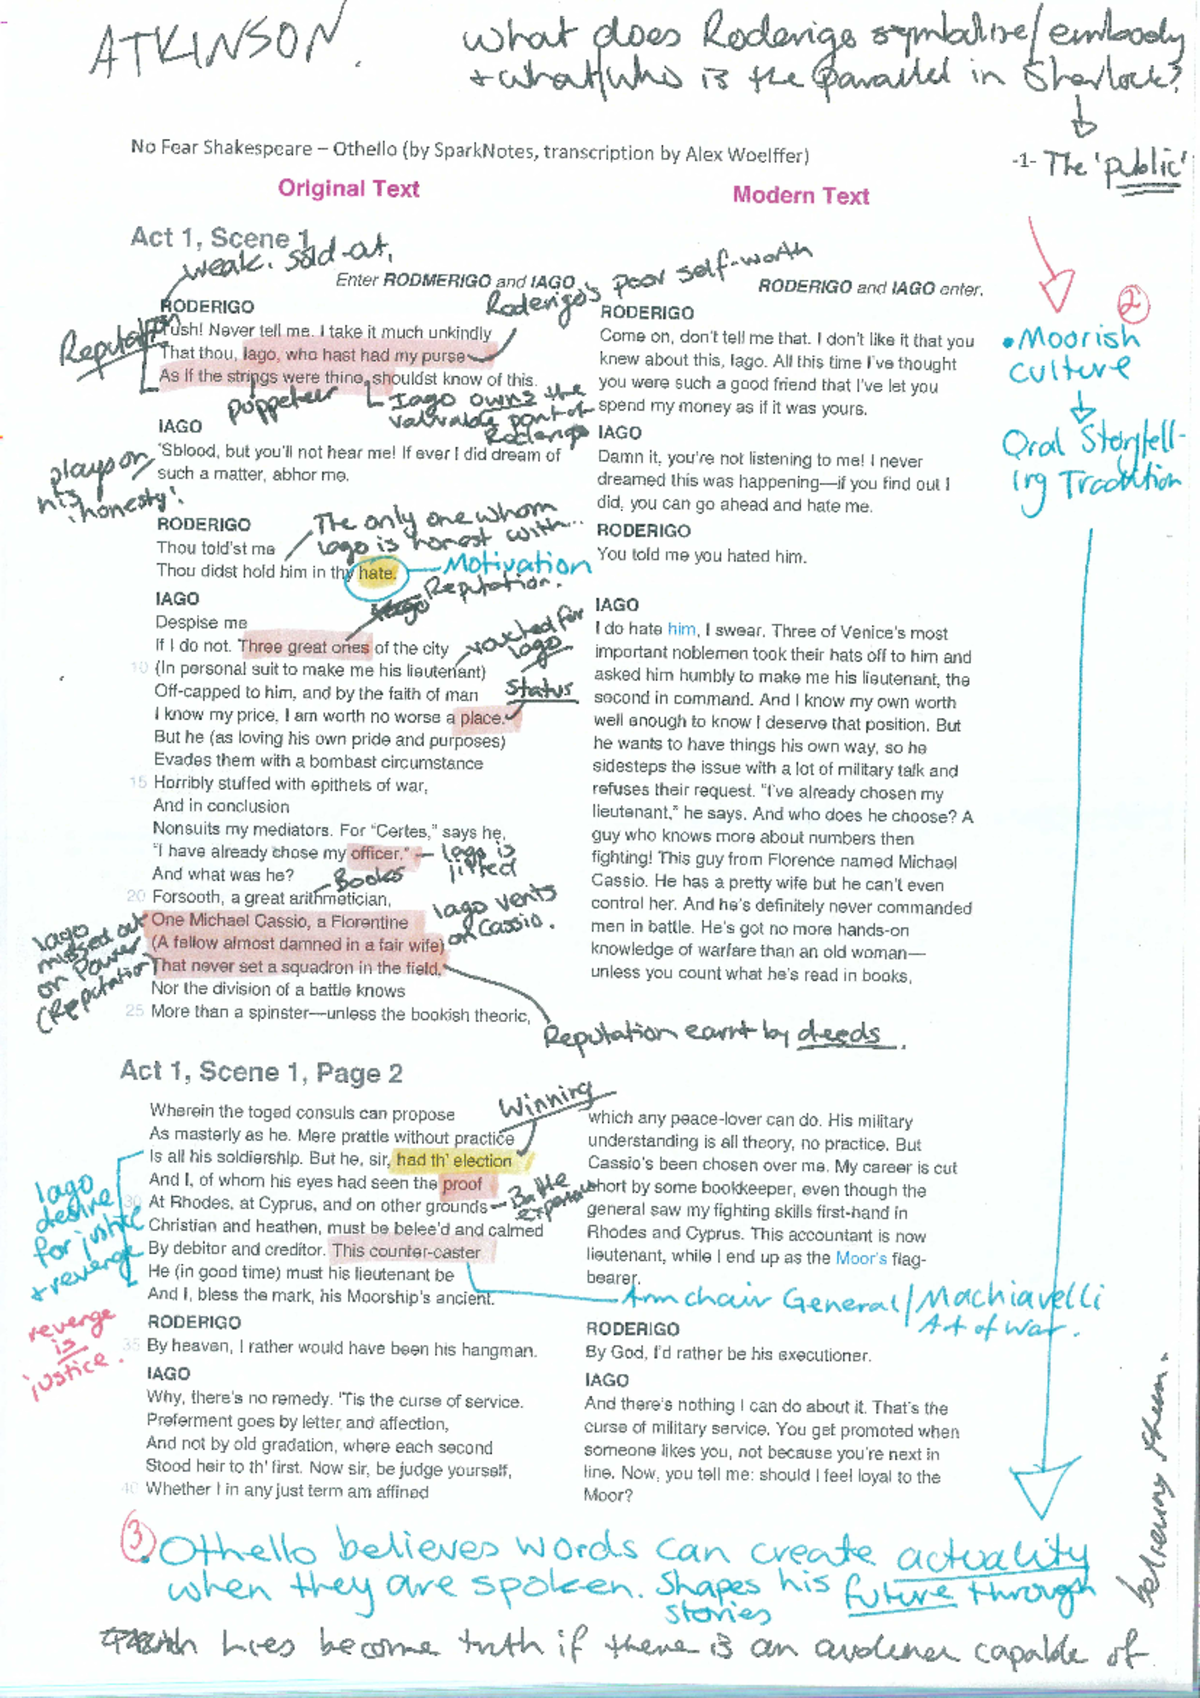 ATKINSON.
What does Roderigo symbolise/embody
+ what/who is the parallel in Sherlock?
No Fear Shakespeare – Othello (by SparkNotes, transcription by Alex Woelffer)
-1- The 'public'
Original Text
Modern Text
Act 1, Scene 1
weak. sold-out.
Enter RODMERIGO and IAGO
Roderigo's poor self-worth
RODERIGO and IAGO enter.
RODERIGO
Reputation
Tush! Never tell me. I take it much unkindly
That thou, Iago, who hast had my purse
As if the strings were thine, shouldst know of this.
puppeteer
Iago owns the
valuable part of
Roderigo
RODERIGO
Come on, don't tell me that. I don't like it that you
knew about this, Iago. All this time I've thought
you were such a good friend that I've let you
spend my money as if it was yours.
2
• Moorish
culture
Oral Storytell-
ing Tradition
IAGO
'Sblood, but you'll not hear me! If ever I did dream of
such a matter, abhor me.
plays on
his
'honesty'.
IAGO
Damn it, you're not listening to me! I never
dreamed this was happening—if you find out I
did, you can go ahead and hate me.
RODERIGO
Thou told'st me
Thou didst hold him in thy hate.
The only one whom
Iago is honest with...
Motivation
RODERIGO
You told me you hated him.
IAGO
Despise me
If I do not. Three great ones of the city
10 (In personal suit to make me his lieutenant)
Off-capped to him, and by the faith of man
I know my price, I am worth no worse a place.
But he (as loving his own pride and purposes)
Evades them with a bombast circumstance
15 Horribly stuffed with epithets of war,
And in conclusion
Nonsuits my mediators. For "Certes," says he,
"I have already chose my officer."
And what was he?
20 Forsooth, a great arithmetician,
One Michael Cassio, a Florentine
(A fellow almost damned in a fair wife)
That never set a squadron in the field,
Nor the division of a battle knows
25 More than a spinster—unless the bookish theoric,
Reputation.
vouched for
Iago
Status
Iago is
jilted
Books
Iago vents
on Cassio.
Iago
missed out
on Power
(Reputation
Reputation earnt by deeds.
IAGO
I do hate him, I swear. Three of Venice's most
important noblemen took their hats off to him and
asked him humbly to make me his lieutenant, the
second in command. And I know my own worth
well enough to know I deserve that position. But
he wants to have things his own way, so he
sidesteps the issue with a lot of military talk and
refuses their request. "I've already chosen my
lieutenant," he says. And who does he choose? A
guy who knows more about numbers then
fighting! This guy from Florence named Michael
Cassio. He has a pretty wife but he can't even
control her. And he's definitely never commanded
men in battle. He's got no more hands-on
knowledge of warfare than an old woman—
unless you count what he's read in books,
Act 1, Scene 1, Page 2
Wherein the toged consuls can propose
As masterly as he. Mere prattle without practice
Is all his soldiership. But he, sir, had th' election
And I, of whom his eyes had seen the proof
30 At Rhodes, at Cyprus, and on other grounds
Christian and heathen, must be belee'd and calmed
By debitor and creditor. This counter-caster
He (in good time) must his lieutenant be
And I, bless the mark, his Moorship's ancient.
Winning
Battle
experience
Iago
desire
for justice
+ revenge
revenge
is
justice.
Armchair General/Machiavelli
Art of War.
which any peace-lover can do. His military
understanding is all theory, no practice. But
Cassio's been chosen over me. My career is cut
short by some bookkeeper, even though the
general saw my fighting skills first-hand in
Rhodes and Cyprus. This accountant is now
lieutenant, while I end up as the Moor's flag-
bearer.
RODERIGO
35 By heaven, I rather would have been his hangman.
RODERIGO
By God, I'd rather be his executioner.
IAGO
Why, there's no remedy. 'Tis the curse of service.
Preferment goes by letter and affection,
And not by old gradation, where each second
Stood heir to th' first. Now sir, be judge yourself,
40 Whether I in any just term am affined
IAGO
And there's nothing I can do about it. That's the
curse of military service. You get promoted when
someone likes you, not because you're next in
line. Now, you tell me: should I feel loyal to the
Moor?
3
• Othello believes words can create actuality
when they are spoken. Shapes his future through
stories
Lies become truth if there is an audience capable of
believing them.